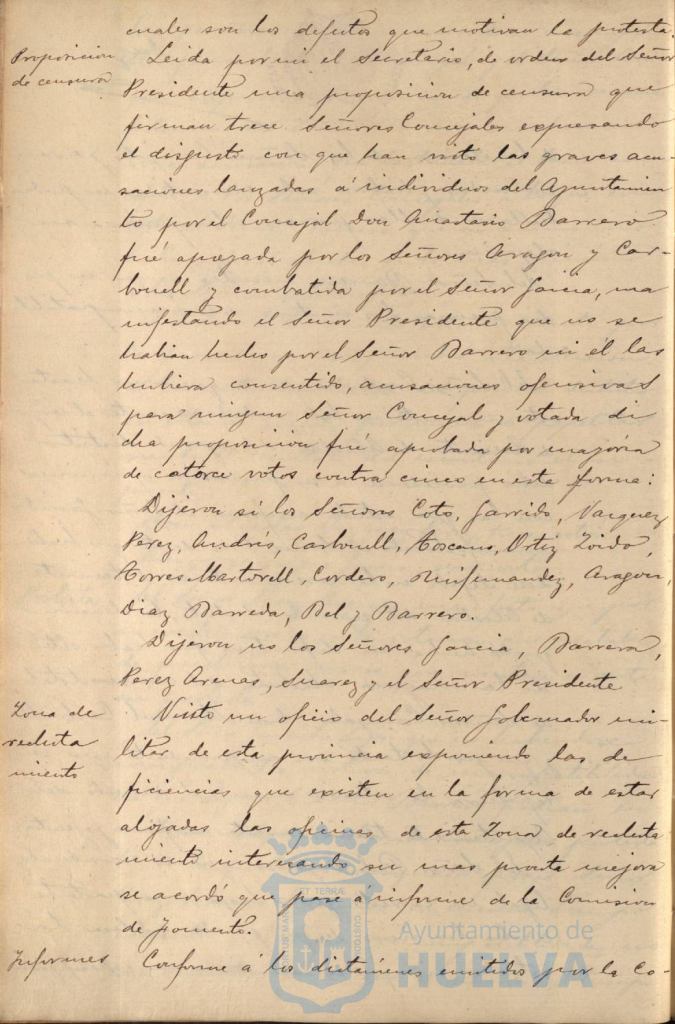 cuales son los defectos que motivan la protesta.
Proposicion
de censura
Leida por mi el Secretario, de orden del Señor
Presidente una proposicion de censura que
firman trece Señores Concejales expresando
el disgusto con que han visto las graves acu-
saciones lanzadas á individuos del Ayuntamien
to por el Concejal Don Anastasio Barrero
fué apoyada por los Señores Aragon y Car-
bonell y combatida por el Señor Garcia, ma
nifestando el Señor Presidente que no se
habian hecho por el Señor Barrero ni él las
hubiera consentido, acusaciones ofensivas
para ningun Señor Concejal y votada di
cha proposicion fué aprobada por mayoria
de catorce votos contra cinco en esta forma:
Dijeron sí los Señores Coto, Garrido, Vazquez
Perez, Andrés, Carbonell, Toscano, Ortiz Zoido,
Torres Martorell, Cordero, Aragon,
Diaz Barreda, Bel y Barrero.
Dijeron no los Señores Garcia, Barrera,
Perez Arenas, Suarez y el Señor Presidente
Zona de
recluta
miento
Visto un oficio del Señor Gobernador mi-
litar de esta provincia exponiendo las de
ficiencias que existen en la forma de estar
alojadas las oficinas de esta Zona de recluta
miento interesando su mas pronta mejora
se acordó que pase á informe de la Comision
de Fomento.
Informes
Conforme á los dictámenes emitidos por la Co-
Ayuntamiento de
HUELVA